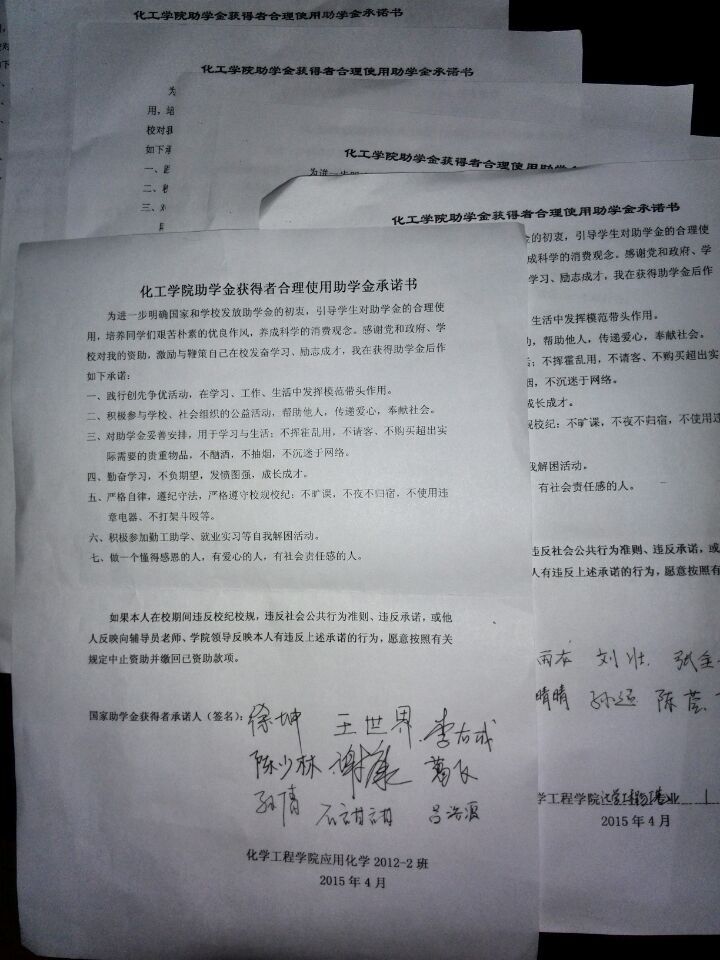 化工学院助学金获得者合理使用助学金承诺书
化工学院助学金获得者合理使用助学金承诺书
为
用，培
校对我
如下承
一、践
二、积
三、对
化工学院助学金获得者合理使用助学金
为进一步明
化工学院助学金获得者合理使用助学金承诺书
的初衷，引导学生对助学金的合理使
成科学的消费观念。感谢党和政府、学
学习、励志成才，我在获得助学金后作
生活中发挥模范带头作用。
，帮助他人，传递爱心，奉献社会。
；不挥霍乱用，不请客、不购买超出实
烟，不沉迷于网络。
成长成才。
规校纪：不旷课，不夜不归宿，不使用违
我解困活动。
有社会责任感的人。
违反社会公共行为准则、违反承诺，或
人有违反上述承诺的行为，愿意按照有
雨衣 刘壮 张全
晴晴 孙远 陈莹
学工程学院
2015年4月
化工学院助学金获得者合理使用助学金承诺书
为进一步明确国家和学校发放助学金的初衷，引导学生对助学金的合理使
用，培养同学们艰苦朴素的优良作风，养成科学的消费观念。感谢党和政府、学
校对我的资助，激励与鞭策自己在校发奋学习、励志成才，我在获得助学金后作
如下承诺：
一、践行创先争优活动，在学习、工作、生活中发挥模范带头作用。
二、积极参与学校、社会组织的公益活动，帮助他人，传递爱心，奉献社会。
三、对助学金妥善安排，用于学习与生活；不挥霍乱用，不请客、不购买超出实
际需要的贵重物品，不酗酒，不抽烟，不沉迷于网络。
四、勤奋学习，不负期望，发愤图强，成长成才。
五、严格自律，遵纪守法，严格遵守校规校纪：不旷课，不夜不归宿，不使用违
章电器、不打架斗殴等。
六、积极参加勤工助学、就业实习等自我解困活动。
七、做一个懂得感恩的人，有爱心的人，有社会责任感的人。
如果本人在校期间违反校纪校规，违反社会公共行为准则、违反承诺，或他
人反映向辅导员老师、学院领导反映本人有违反上述承诺的行为，愿意按照有关
规定中止资助并缴回已资助款项。
国家助学金获得者承诺人（签名）：徐坤 王世界 李右成
陈少林 谢康 葛飞
孙倩 石甜甜 吕浩源
化学工程学院应用化学2012-2班
2015年4月